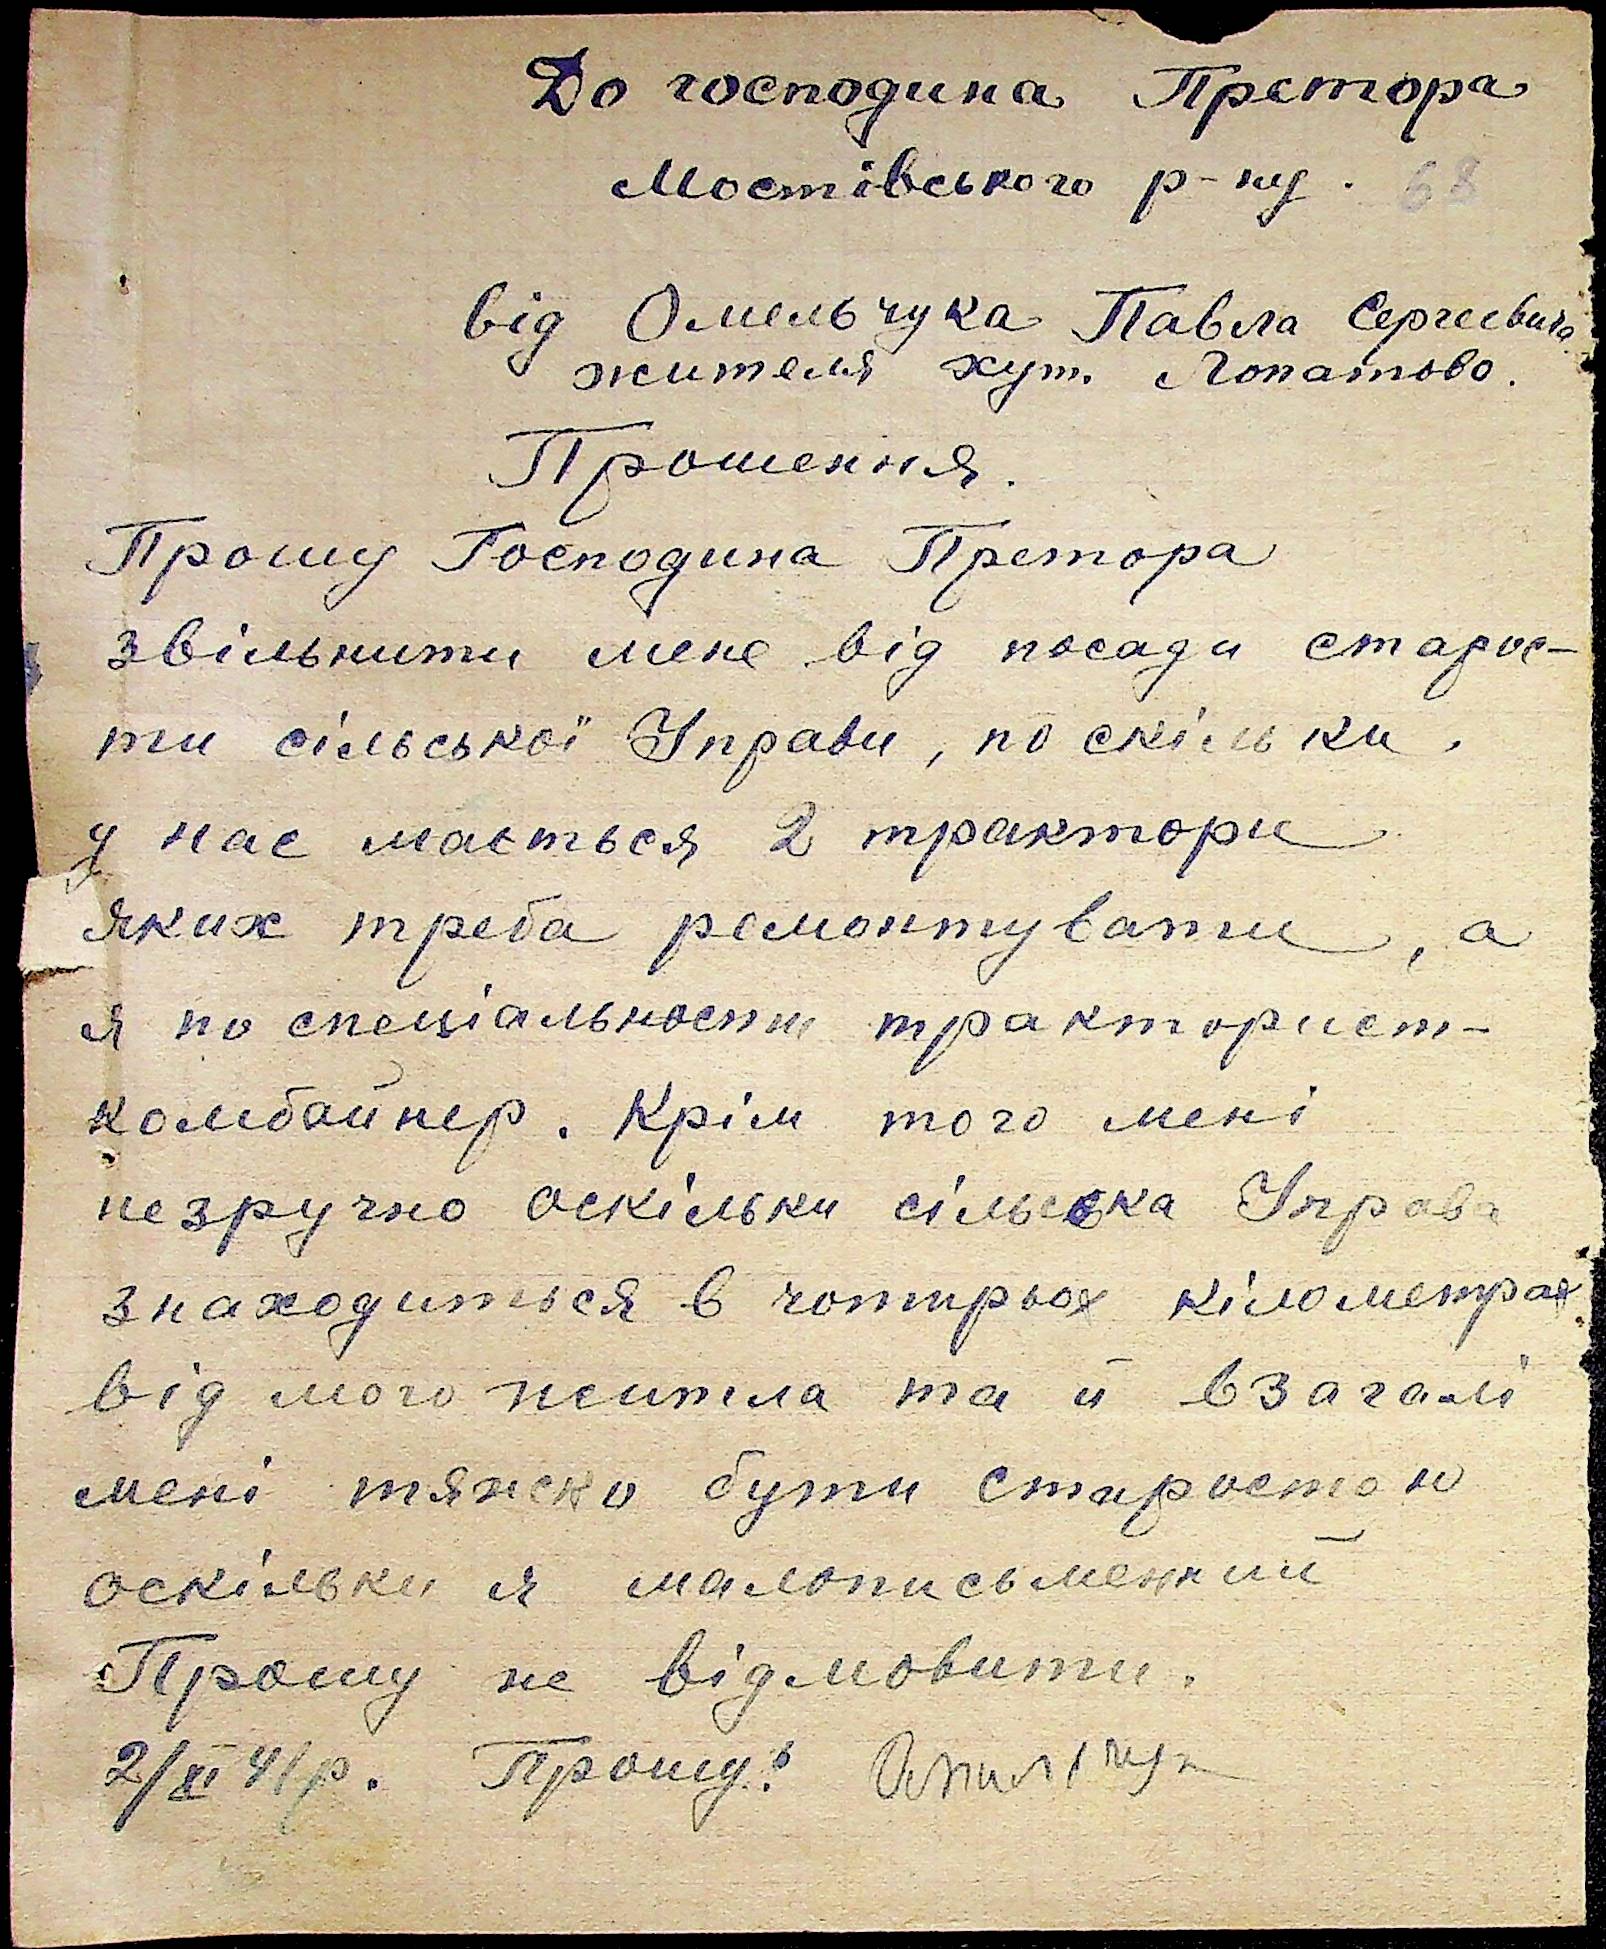 До господина Претора
Мостівського р-ну. 68
від Омельчука Павла Сергеевича
жителя хут. Лопатово.
Прошення.
Прошу Господина Претора
звільнити мене від посади старос-
ти сільської Управи, по скільки
у нас мається 2 трактори
яких треба ремонтувати, а
я по спеціальности тракторист-
комбайнер. Крім того мені
незручно оскільки сільська Управа
знаходиться в чотирьох кілометрах
від мого житла та й взагалі
мені тяжко бути старостою
оскільки я малописьменний
Прошу не відмовити.
2/XI 41р. Прошу: Омельчук